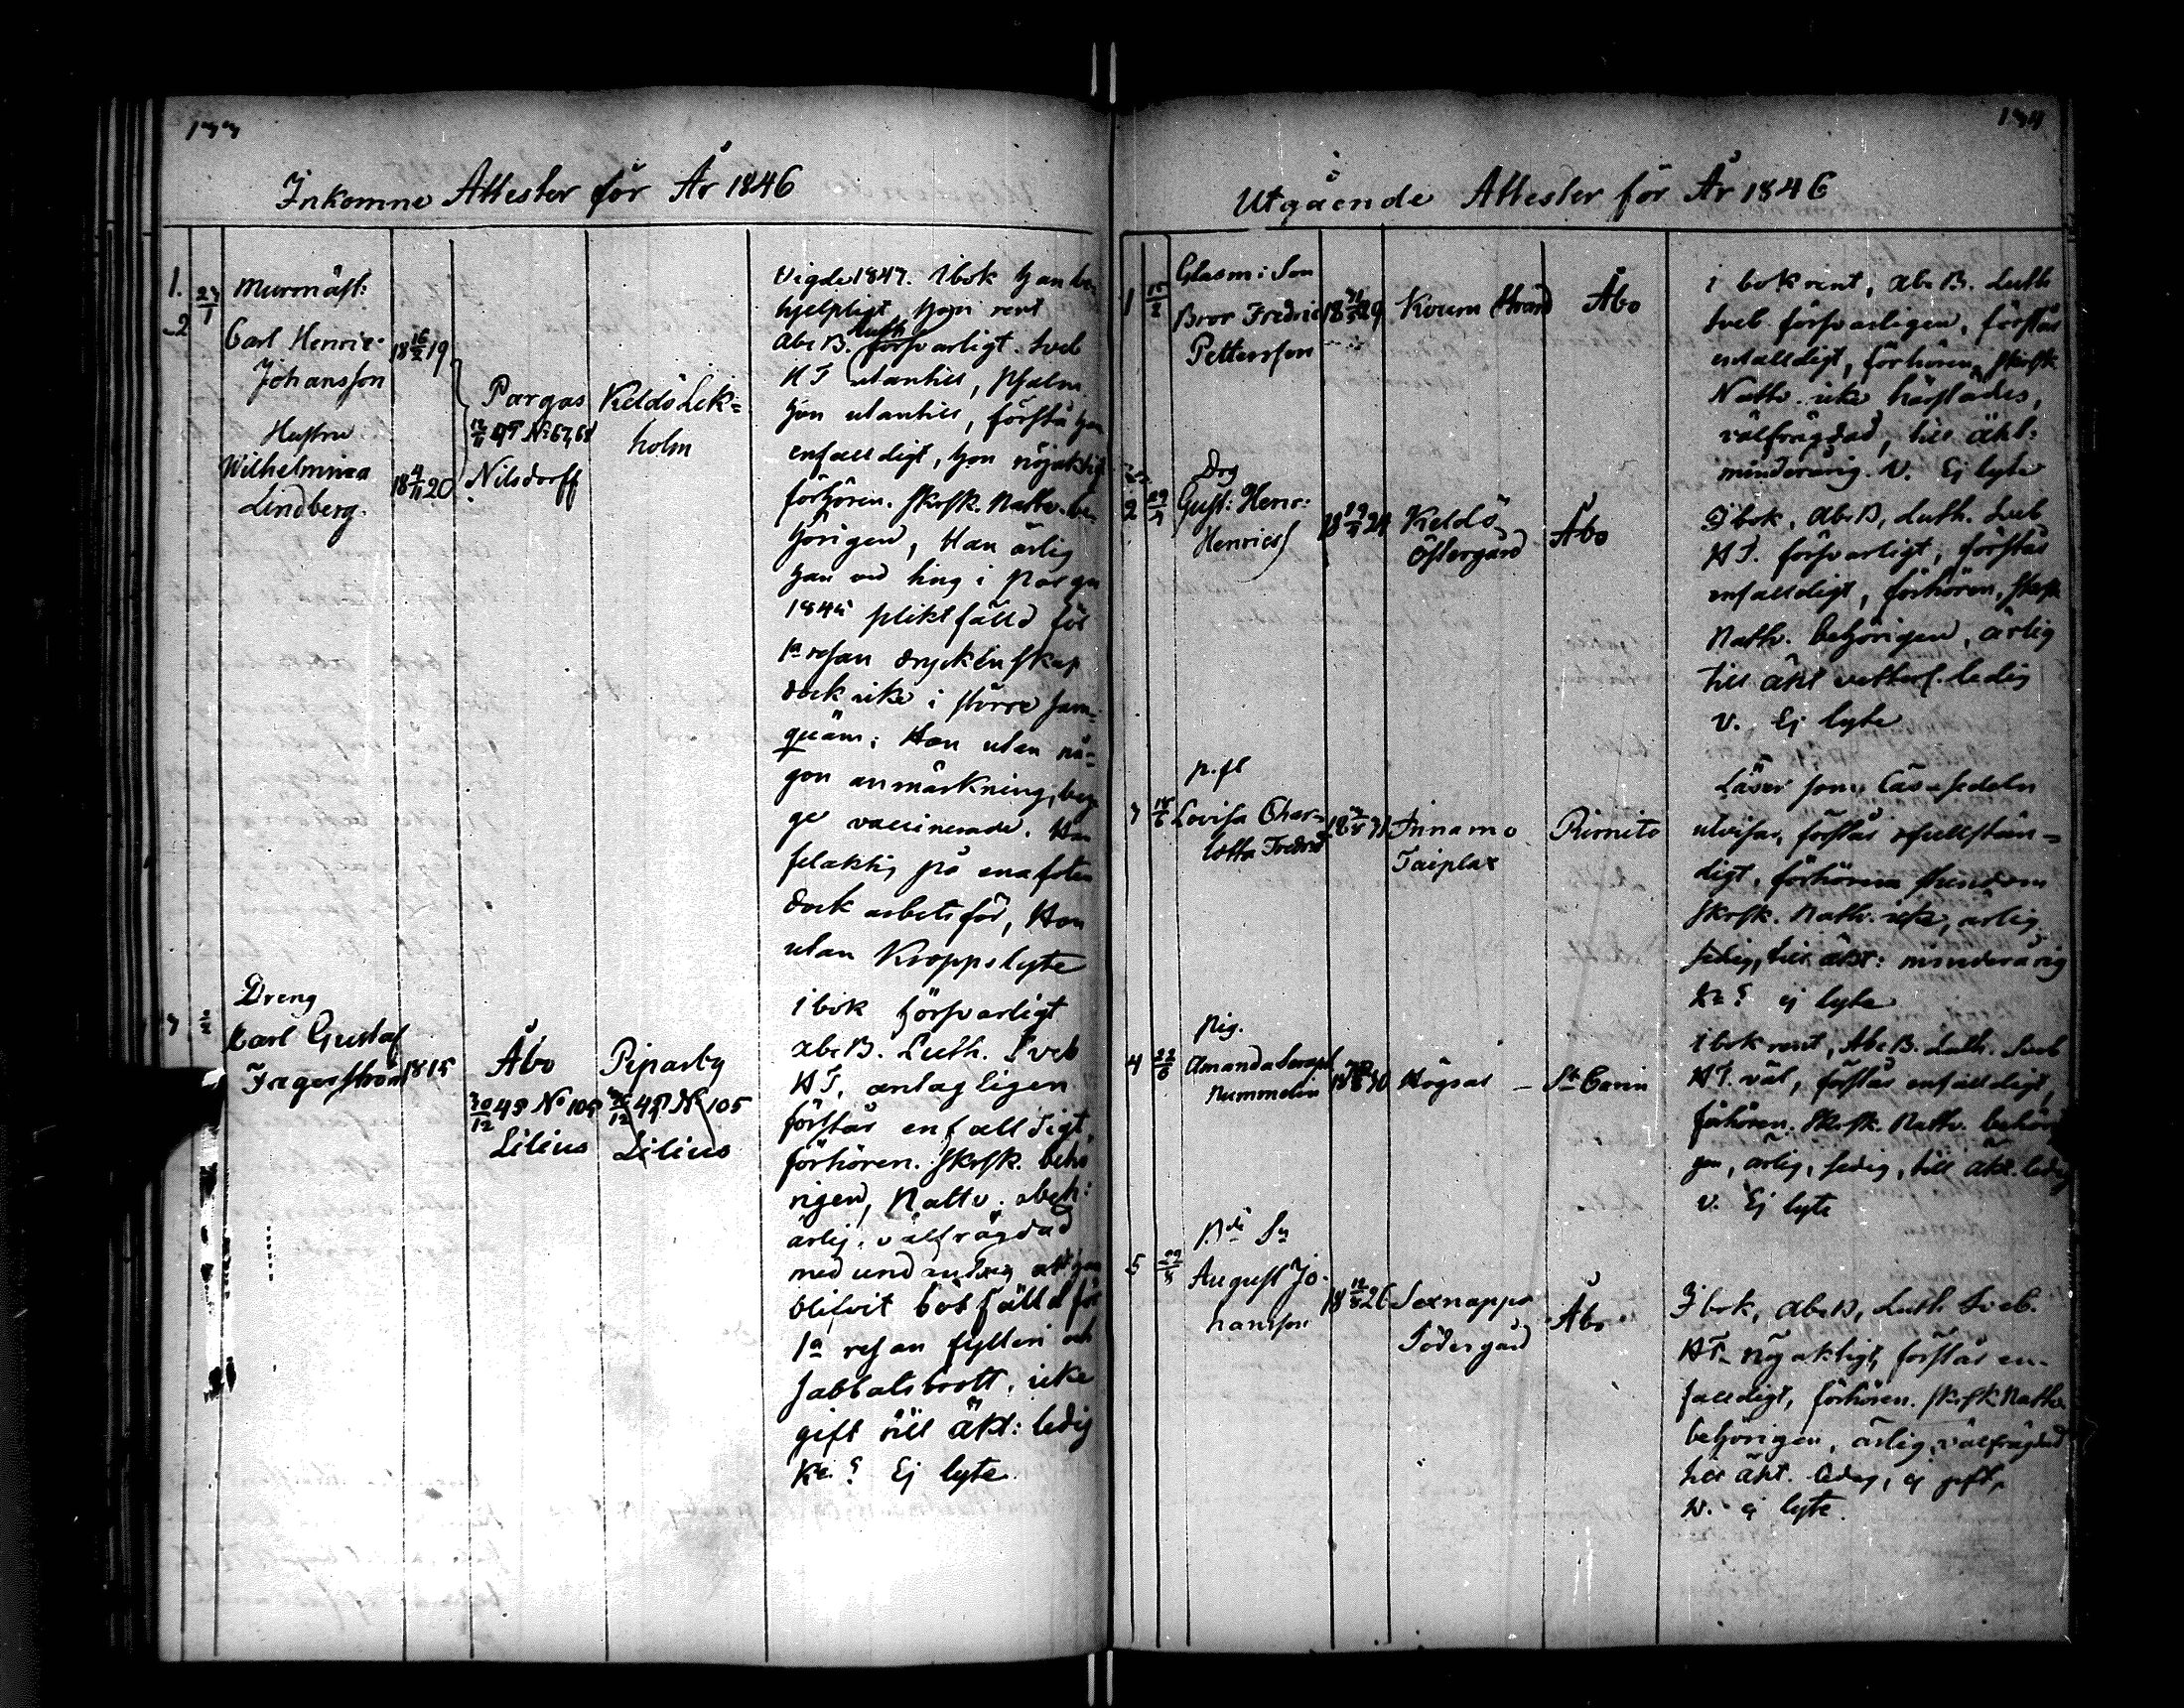 133
Inkomne Attester för År 1846
1.
2
27/1
Murmäst:
Carl Henric
Johansson
Hustru
Wilhelmina
Lindberg.
18 16/2 19
18 4/11 20
Pargas
No 67,68
Nilsdorff
Keldö Lek=
holm
Vigde 1847. i bok han be-
hjelpligt hon rent
Abc B. Luth försvarligt. Sveb
HT utantill, Psalm
hon utantill, förstå han
enfalldigt, hon nöjaktigt
förhören. Skrsk. Nattv. be-
hörigen, Han ärlig
han vid ting i Pargas
1845 pliktfälld för
1a resan dryckenskap
dock icke i större sam-
qväm; Hon utan nå-
gon anmärkning, beg-
ge vaccinerade. Han
felaktig på ena foten
dock arbetsför, Hon
utan Kroppslyte
3
Dreng
Carl Gustaf
Fagerström
1815
Åbo
30/12 45 No 105
Lilius
Piparby
30/12 45 No 105
Lilius
i bok försvarligt
abc B. Luth. Sveb
HT. antagligen
förstår enfalldigt
förhören. Skrsk. behö
rigen, Nattv. obeh:
ärlig, välfrägdad
med undantag att han
blifvit botfälld för
1a resan fylleri och
sabbatsbrott, icke
gift till äkt: ledig
Kc.? Ej lyte.
134
Utgående Attester för År 1846
1
15/2
Glasm: Son
Bror Fredric
Pettersson
Åbo
i bok rent, Abc B. Luth
Sveb försvarligen, förstår
enfalldigt, förhören, skrsk
Nattv. icke härstädes,
välfrägdad, till äkt:
minderårig. V. Ej lyte
2
Drg
Gust: Henr:
Henricss
Keldö
Östergård
Åbo
I bok, Abc B, Luth. Sveb
HT. försvarligt, förstår
enfalldigt, förhören, Skrsk
Nattv. behörigen, ärlig
till äkt vetterl. ledig
V. Ej lyte
3
p. fl
Lovisa Char=
lotta Fredric
Innamo
Taiplax
Rimito
Läser som läs-sedeln
utvisar, förstår ofullstän=
digt, förhören
Skrsk. Nattv. icke, ärlig
sedig, till äkt: minderårig
Kc? ej lyte
4
22/6
Pig.
Amanda Seraph
Nummelin
Högsar
St Carin
i bok rent, Abc B. Luth. Sveb
HT. väl, förstår enfalldigt,
förhören. Skrsk. Nattv. behöri
gen, ärlig, sedig, till äkt. ledig
V. Ej lyte
5
Bde Sn
August Jo-
hansson
Sexnappa
Södergård
Åbo
I bok, Abc B, Luth Sveb.
HT. nöjaktigt, förstår en-
falldigt, förhören. Skrsk Nattv.
behörigen, ärlig, välfrägdad
till äkt. ledig, ej gift,
V. ej lyte.